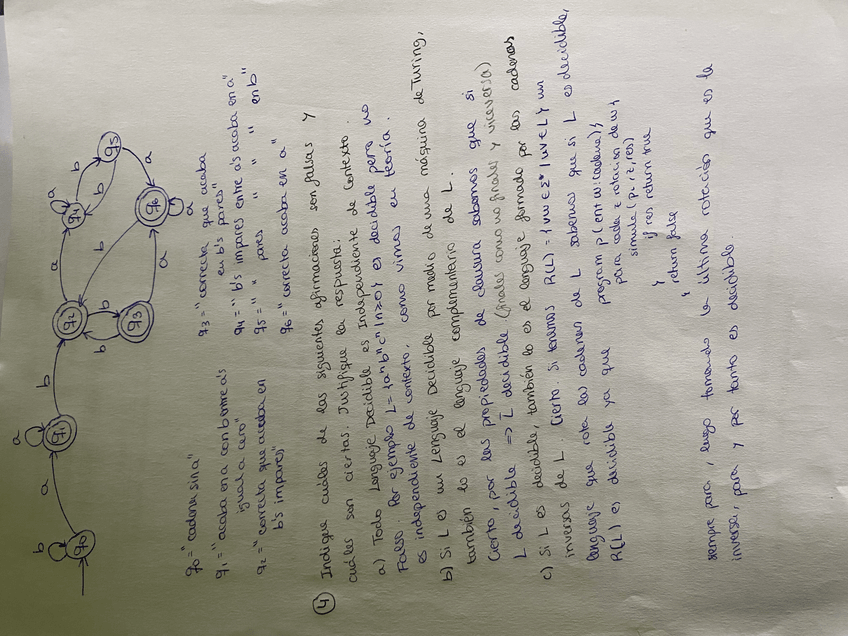 b
q0
a
a
q1
b
q2
b
b
q3
a
b
a
q4
b
b
q5
a
q6
a
q0 = "cadena sin a"
q1 = "acaba en a con b entre a's
igual a cero"
q2 = "correcta que acaba en
b's impares"
q3 = "correcta que acaba
en b's pares"
q4 = "b's impares entre a's acaba en a"
q5 = " " pares " " " " en b"
q6 = "correcta acaba en a"
④ Indique cuáles de las siguientes afirmaciones son falsas y
cuáles son ciertas. Justifique la respuesta:
a) Todo Lenguaje Decidible es Independiente de Contexto.
Falso. Por ejemplo L = {aⁿbⁿcⁿ | n≥0} es decidible pero no
es independiente de contexto, como vimos en teoría.
b) Si L es un Lenguaje Decidible por medio de una máquina de Turing,
también lo es el lenguaje complementario de L.
Cierto, por las propiedades de clausura sabemos que si
L decidible => L̄ decidible (finales como no finales y viceversa)
c) Si L es decidible, también lo es el lenguaje formado por las cadenas
inversas de L. Cierto. Si tenemos R(L) = {vu ∈ Σ* | uv ∈ L} un
lenguaje que rota las cadenas de L sabemos que si L es decidible,
R(L) es decidible ya que
program p (ent w: cadena){
para cada z rotacion de w{
simula (p, z, res)
if res return true
}
return false
}
siempre para, luego tomando la última rotación que es la
inversa, para y por tanto es decidible.